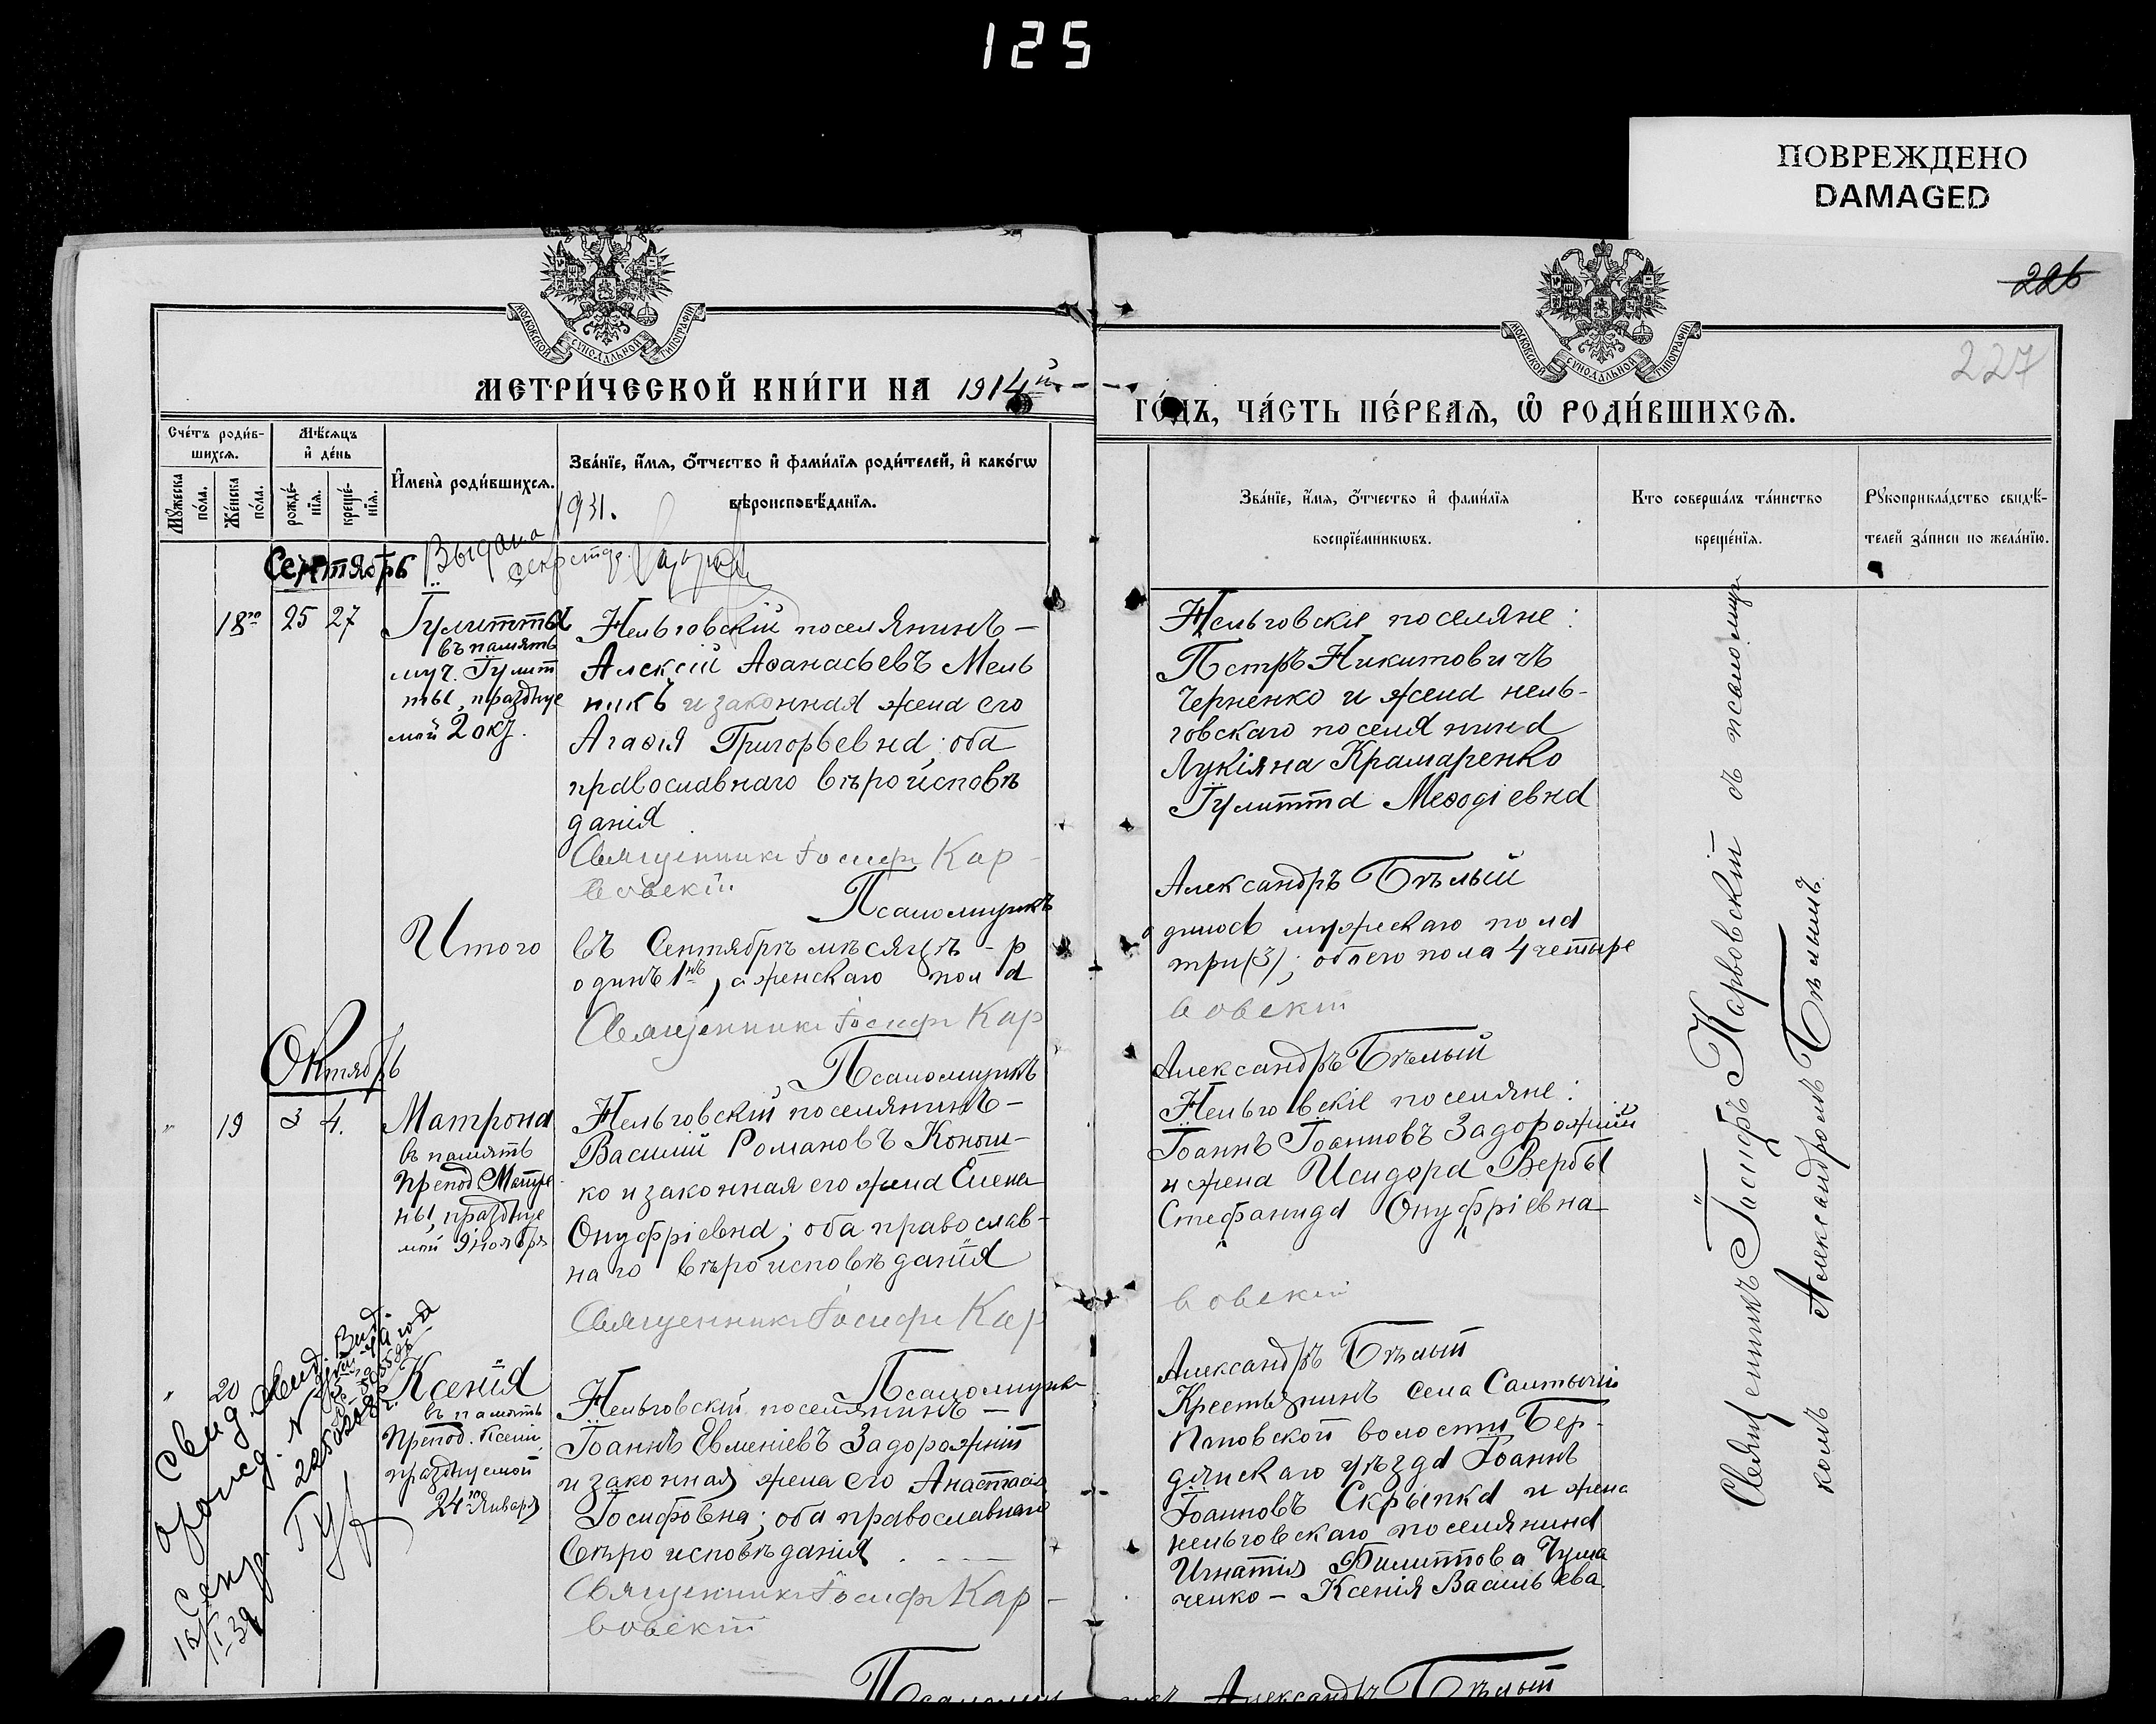 125
ПОВРЕЖДЕНО
DAMAGED
226
227
МОСКОВСКОЙ СУНОДАЛЬНОЙ ТИПОГРАФІИ
МОСКОВСКОЙ СУНОДАЛЬНОЙ ТИПОГРАФІИ
МЕТРИ́ЧЕСКОЙ КНИ́ГИ НА 1914й
ГО́ДЪ, ЧА́СТЬ ПЕ́РВАѦ, Ѿ РОДИ́ВШИХСѦ.
Сче́тъ роди́в-
шихсѧ.
Мꙋ́жеска по́ла.
Же́нска по́ла.
Мѣ́сѧцъ
и҆ де́нь
рожде́-
нїѧ.
креще́-
нїѧ.
И҆мена̀ роди́вшихсѧ.
Зва́нїе, и҆́мѧ, ѻ҆́тчество и҆ фами́лїѧ роди́телей, и҆ како́гѡ
вѣроисповѣ́данїѧ.
Зва́нїе, и҆́мѧ, ѻ҆́тчество и҆ фами́лїѧ
воспрїе́мникѡвъ.
Кто соверша́лъ та́инство
креще́нїѧ.
Рꙋкоприкла́дство свидѣ́-
телей за́писи по жела́нїю.
1931.
Выдана
Сентябрь
18го 25 27
Іулитта
въ память
муч. Іулит
ты, празднуе
мой 2 окт.
Нельговскій поселянинъ —
Алексій Аѳанасьевъ Мель
никъ и законная жена его
Агаѳія Григорьевна; оба
православнаго вѣроисповѣ
данія
Священникъ Іосифъ Кар
вовскій
Псаломщикъ
Нельговскіе поселяне:
Петръ Никитовичъ
Черненко и жена нель-
говскаго поселянина
Лукіяна Крамаренко
Іулитта Меѳодіевна
Александръ Бѣлый
Итого въ Сентябрѣ мѣсяцѣ - р
одинъ 1нъ, а женскаго пола
одилось мужескаго пола
три (3); обоего пола 4 четыре
Священникъ Іосифъ Кар
вовскій
Псаломщикъ
Александръ Бѣлый
Октябрь
" 19 3 4.
Матрона
въ память
препод. Матро
ны, празднуе
мой 9 ноября
Нельговскій поселянинъ —
Василій Романовъ Конош-
ко и законная его жена Елена
Онуфріевна; оба православ-
наго вѣроисповѣданія
Священникъ Іосифъ Кар
Псаломщикъ
Нельговскіе поселяне:
Іоаннъ Іоанновъ Задорожній
и жена Исидора Вербы
Стефанида Онуфріевна
вовскій
Александръ Бѣлый
" 20
Ксенія
въ память
препод. Ксеніи
празднуемой
24го Января
Нельговскій поселянинъ —
Іоаннъ Евменіевъ Задорожній
и законная жена его Анастасія
Іосифовна; оба православнаго
вѣроисповѣданія
Священникъ Іосифъ Кар-
вовскій
Крестьянинъ села Салтычіи
Поповской волости Бер-
дянскаго уѣзда Іоаннъ
Іоанновъ Скрыпка и жена
нельговскаго поселянина
Игнатія Филиппова Чума
ченко — Ксенія Васильева.
Псаломщикъ Александръ Бѣлый
Священникъ Іосифъ Карвовскій съ псаломщи
комъ Александромъ Бѣлымъ